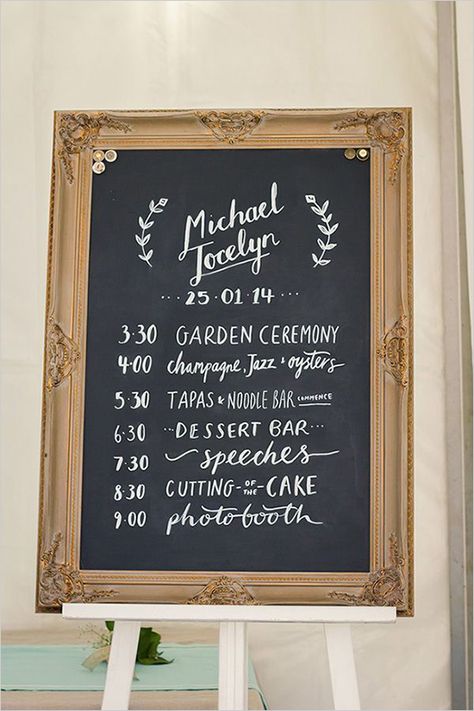 Michael
Jocelyn
... 25.01.14 ...
3:30 GARDEN CEREMONY
4:00 champagne, Jazz + oysters
5:30 TAPAS & NOODLE BAR COMMENCE
6:30 ...DESSERT BAR...
7:30 speeches
8:30 CUTTING-OF THE-CAKE
9:00 photobooth